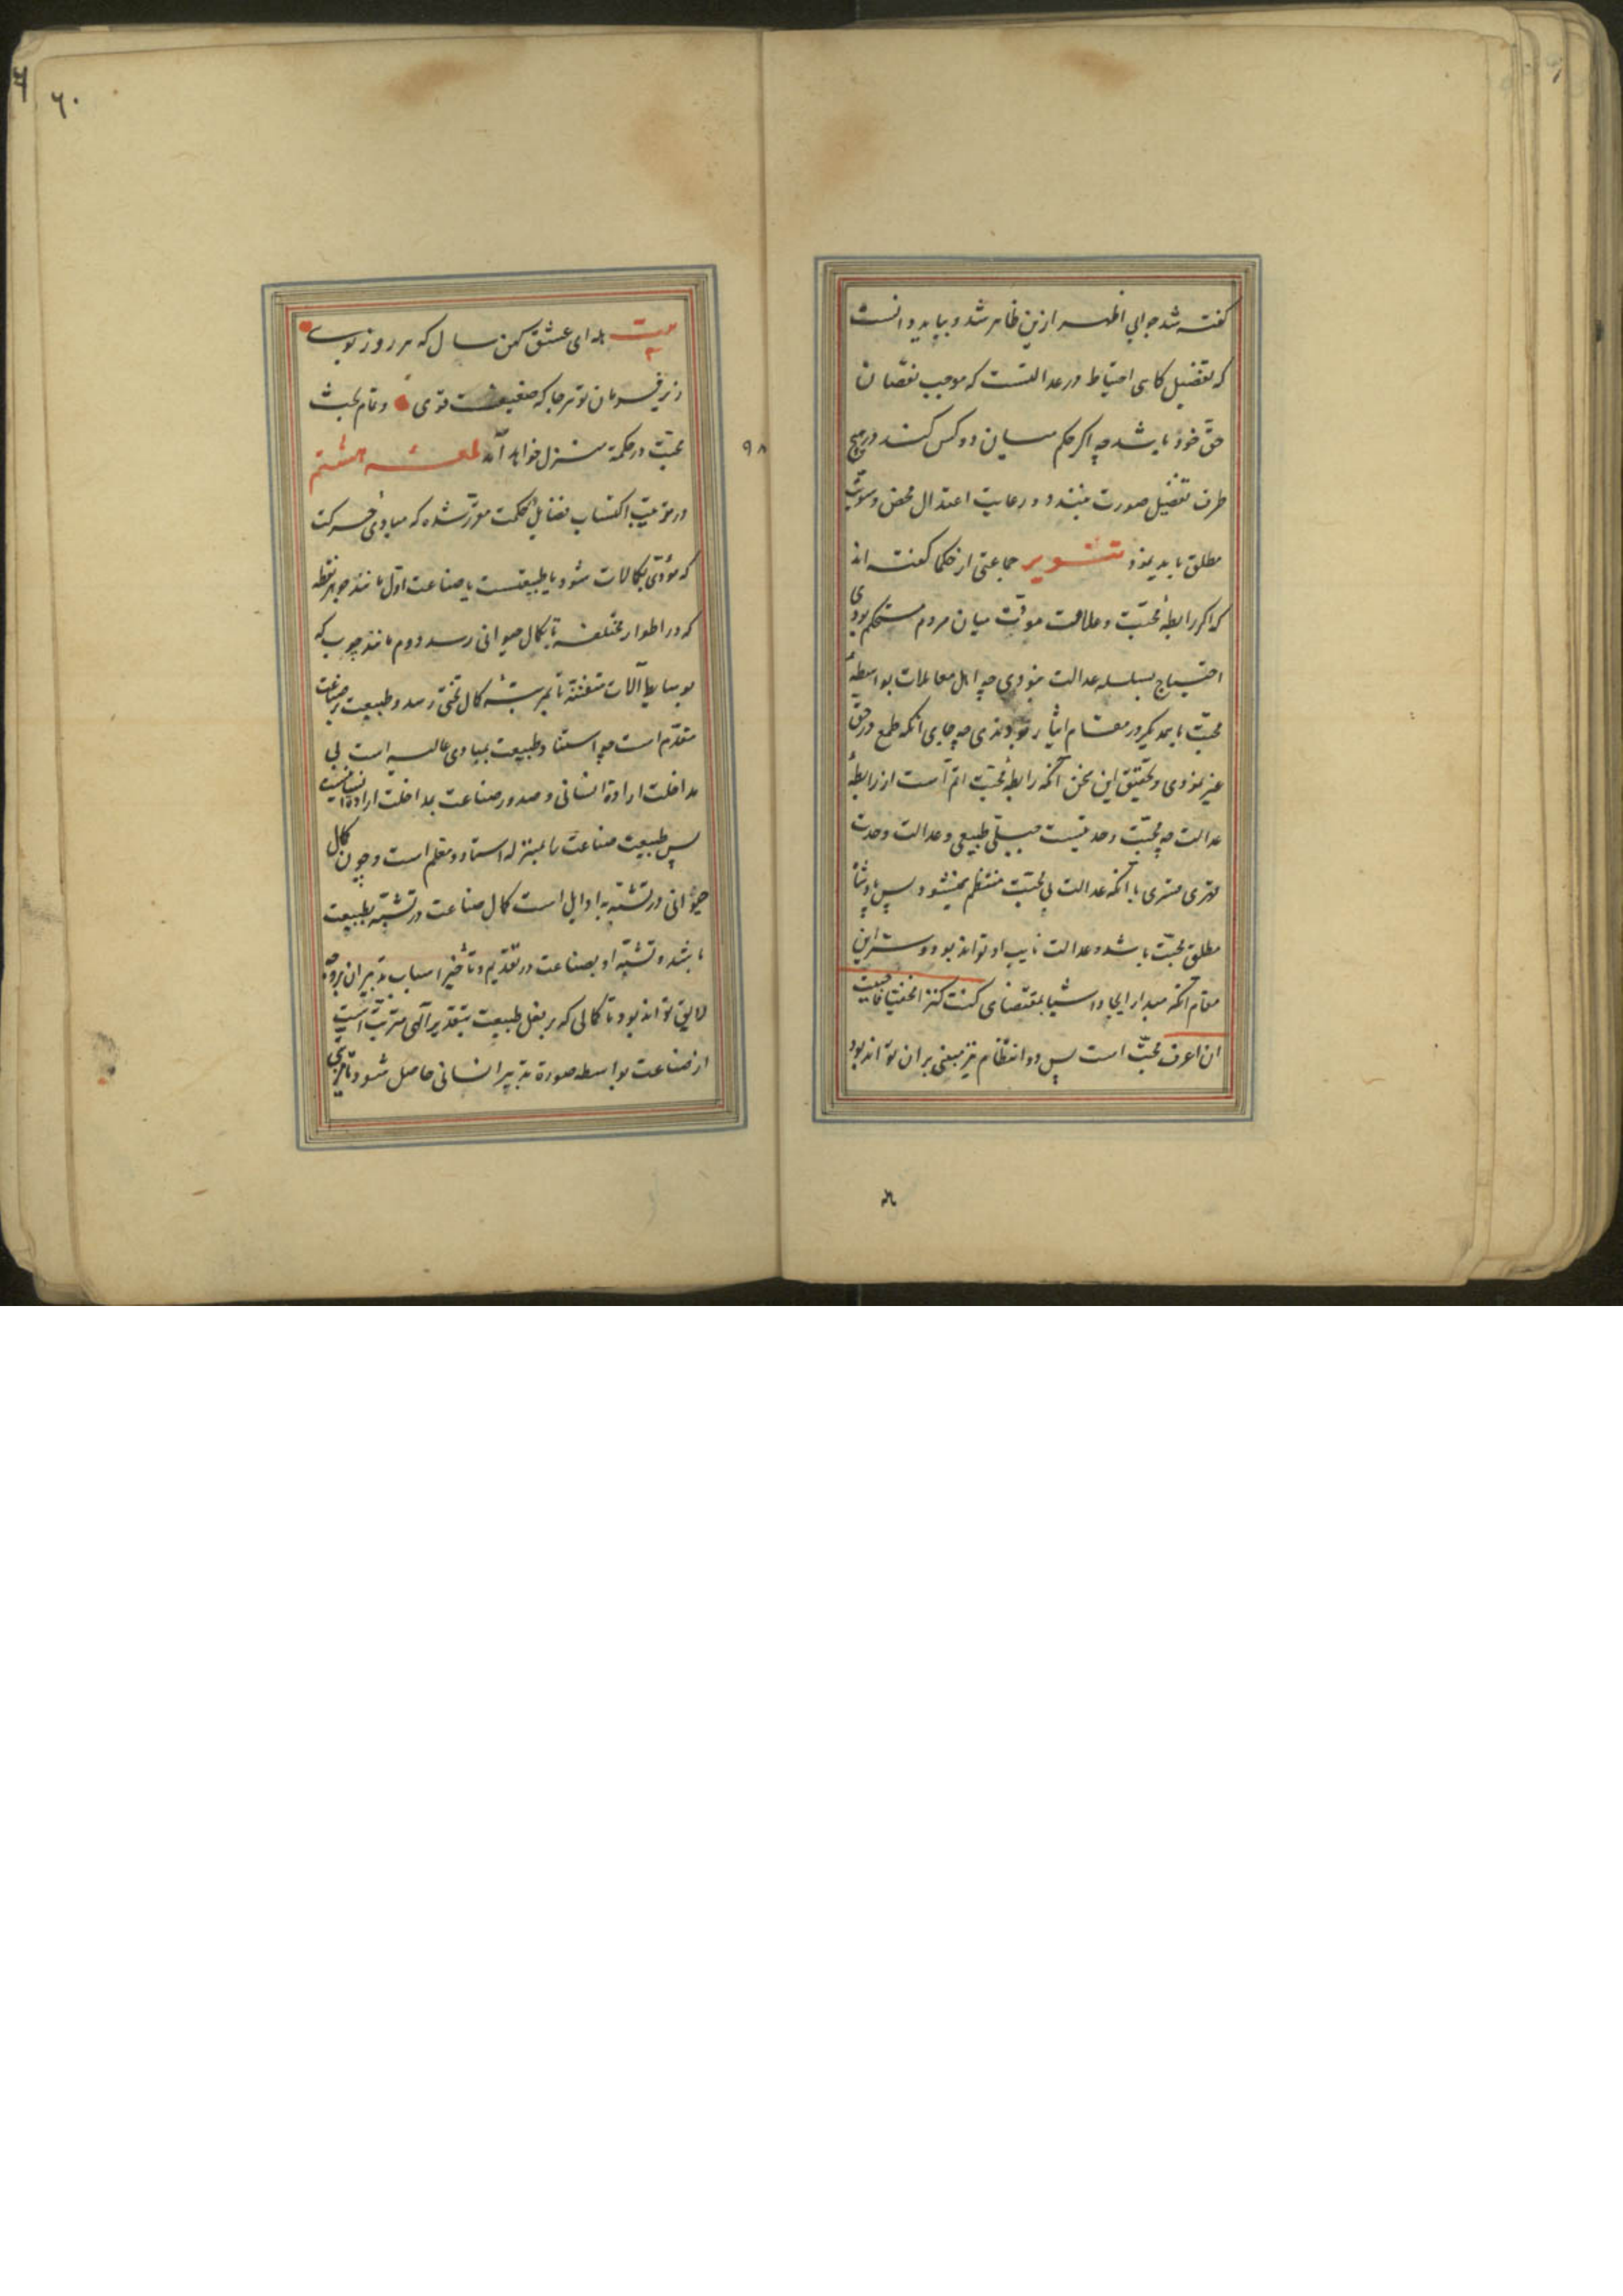 گفته شد جوابی اظهر ازین ظاهر شد و بباید دانست
که تفضیل کاهی احتیاط در عدالتست که موجب نقصان
حق خود باشد چه اکر حکم میان دو کس کند در هیچ
طرف تفضیل صورت نبندد و رعایت اعتدال محض و سویت
مطلق باید نمود تنویر جماعتی از حکما کفته اند
که اکر رابطهٔ محبّت و علاقت مودّت میان مردم مستحکم بودی
احتیاج بسلسله عدالت نبودی چه اهل معاملات بواسطهٔ
محبّت با یکدیکر در مقام ایثار بودندی چه جای انکه طمع در حق
غیر نمودی و تحقیق این سخن آنکه رابطهٔ محبّت اتمّ است از رابطهٔ
عدالت چه محبّت وحدتیست جبلّی طبیعی و عدالت وحدت
قهری قسری با آنکه عدالت بی محبّت منتظم نمیشود پس پادشاه
مطلق محبّت باشد و عدالت نایب او تواند بود و سرّ این
مقام آنکه مبدا ایجاد اشیا بمقتضای کنت کنزا مخفیا فاحببت
ان اعرف محبّت است پس در انتظام نیز مبنی بر ان تواند بود
۹۸
٦٠
بیت هله ای عشق کهن سال که هر روز نوی
زیر فرمان تو هر جا که ضعیفست و قوی و تمام بحث
محبّت در حکمة منزل خواهد آمد لمعهٔ هشتم
در ترتیب اکتساب فضایل بحکمت مقرّر شده که مبادی حرکت
که مؤدّی بکمالات شود یا طبیعتست یا صناعت اوّل مانند جوهر نطفه
که در اطوار مختلفه تا بکمال حیوانی رسد دوم مانند چوب که
بوسایط آلات متفننه تا بمرتبهٔ کمال تختی رسد و طبیعت بر صناعت
مقدّم است چه استناد طبیعت بمبادی عالیه است بی
مداخلت ارادة انسانی و صدور صناعت بمداخلت ارادة انسانیست
پس طبیعت صناعت را بمنزله استاد و معلم است و چون کمال
حیوانی در تشبّه باوایل است کمال صناعت در تشبّه بطبیعت
باشد و تشبّه او بصناعت در تقدیم و تأخیر اسباب و تدبیر ان بر وجه
لایق تواند بود تا کمالی که بر فعل طبیعت بتقدیر آلهی مترتّب است
از صناعت بواسطه صورة تدبیر انسانی حاصل شود با مزیتی